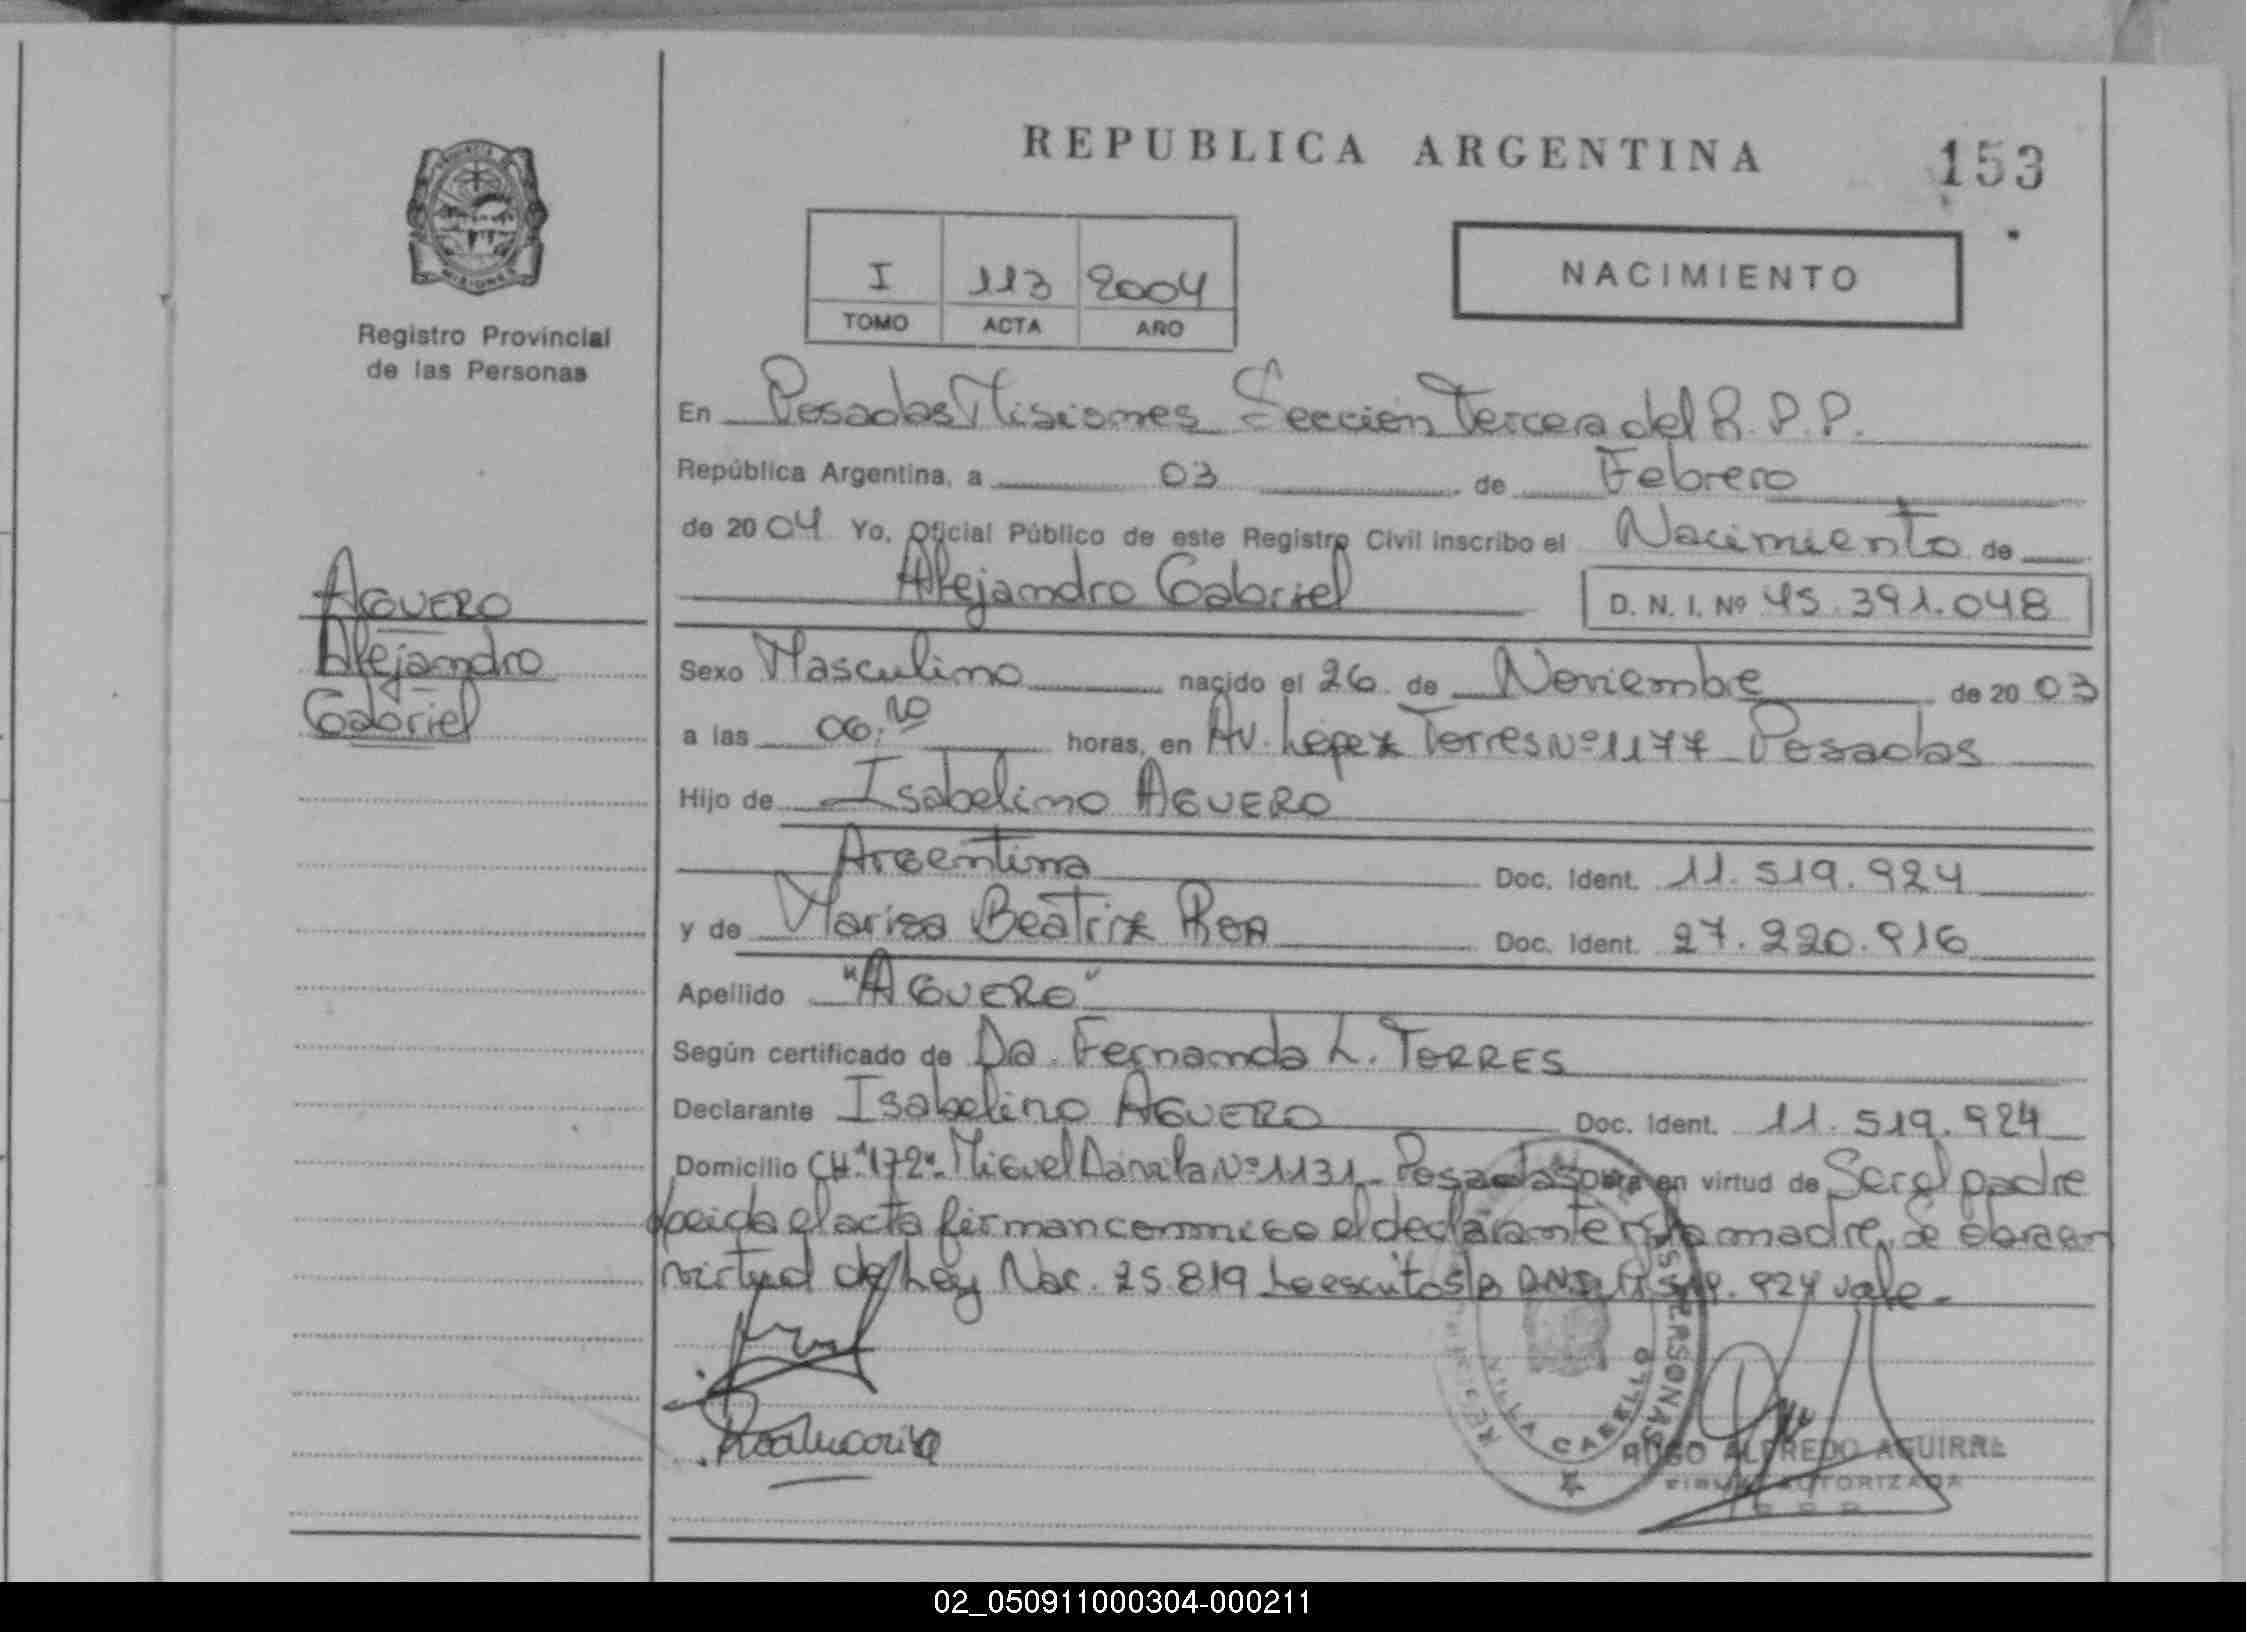 REPUBLICA ARGENTINA
153
PROVINCIA DE
MISIONES
Registro Provincial
de las Personas
I 113 2004
TOMO ACTA AÑO
NACIMIENTO
En Posadas Misiones Sección Tercera del R. P. P.
República Argentina, a 03 de Febrero
de 2004 Yo, Oficial Público de este Registro Civil inscribo el Nacimiento de
Alejandro Gabriel
D. N. I. Nº 45.391.048
AGUERO
Alejandro
Gabriel
Sexo Masculino nacido el 26 de Noviembre de 2003
a las 06:20 horas, en Av. López Torres Nº 1177 Posadas
Hijo de Isabelino AGUERO
Argentina Doc. Ident. 11.519.924
y de Marisa Beatriz Roa Doc. Ident. 27.220.916
Apellido "AGUERO"
Según certificado de Da. Fernanda L. TORRES
Declarante Isabelino AGUERO Doc. Ident. 11.519.924
Domicilio CH. "172". Miguel Dávila Nº 1131 - Posadas obra en virtud de Ser el padre
leida el acta firman conmigo el declarante y la madre, Se obra en
virtud de Ley Nac. 25.819 Lo escrito s/b D.N.I. 11.519.924 vale.-
PERSONAS
VILLA CABELLO
HUGO ALFREDO AGUIRRE
FIRMA AUTORIZADA
R P P
02_050911000304-000211